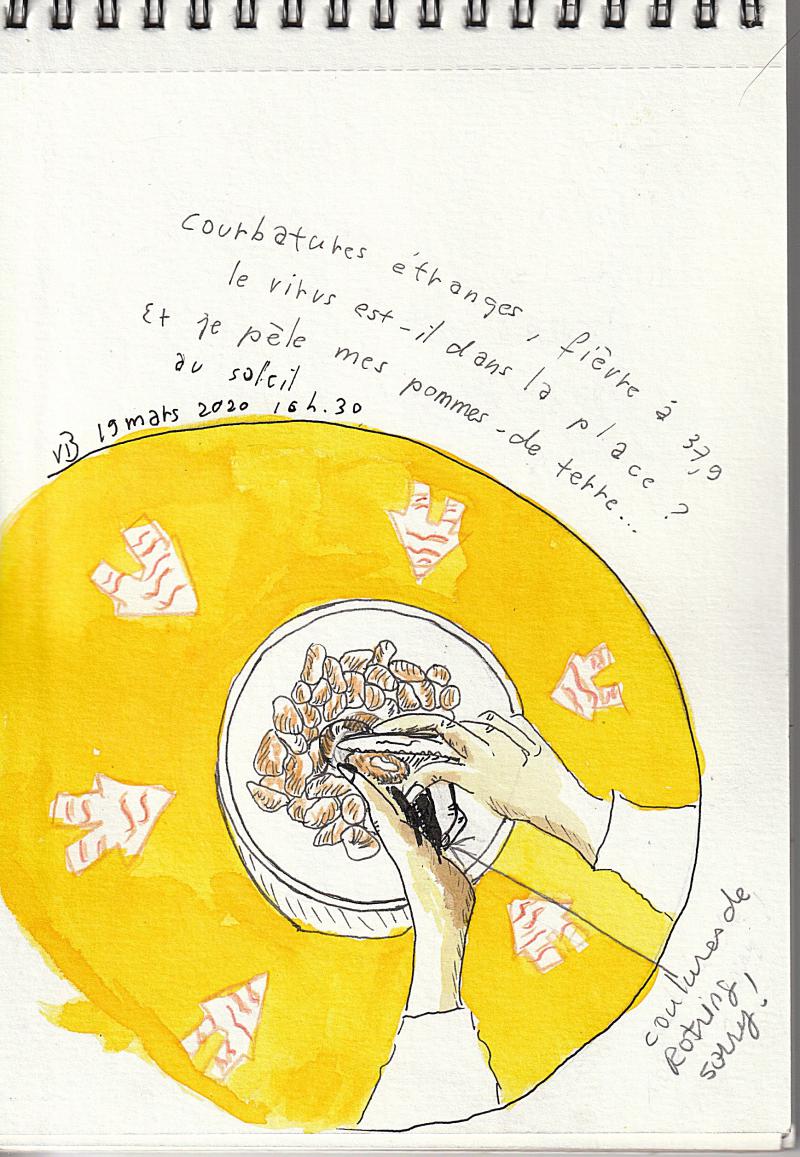 courbatures étranges, fièvre à 37,9
le virus est-il dans la place ?
Et je pèle mes pommes-de terre...
au soleil
VB 19 mars 2020 16h.30
coulures de
Rotring
sorry!